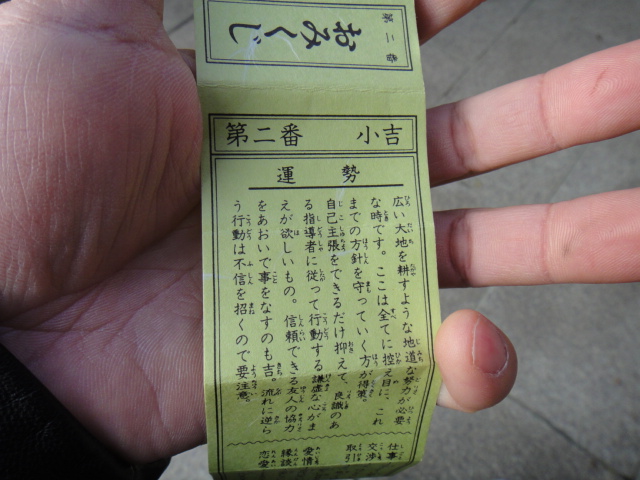 第二番
おみくじ
第二番 小吉
運勢
広い大地を耕すような地道な努力が必要
な時です。ここは全てに控え目に、これ
までの方針を守っていく方が得策。
自己主張をできるだけ抑えて、良識のあ
る指導者に従って行動する謙虚な心がま
えが欲しいもの。信頼できる友人の協力
をあおいで事をなすのも吉。流れに逆ら
う行動は不信を招くので要注意。
仕事
交渉
取引
愛情
縁談
恋愛